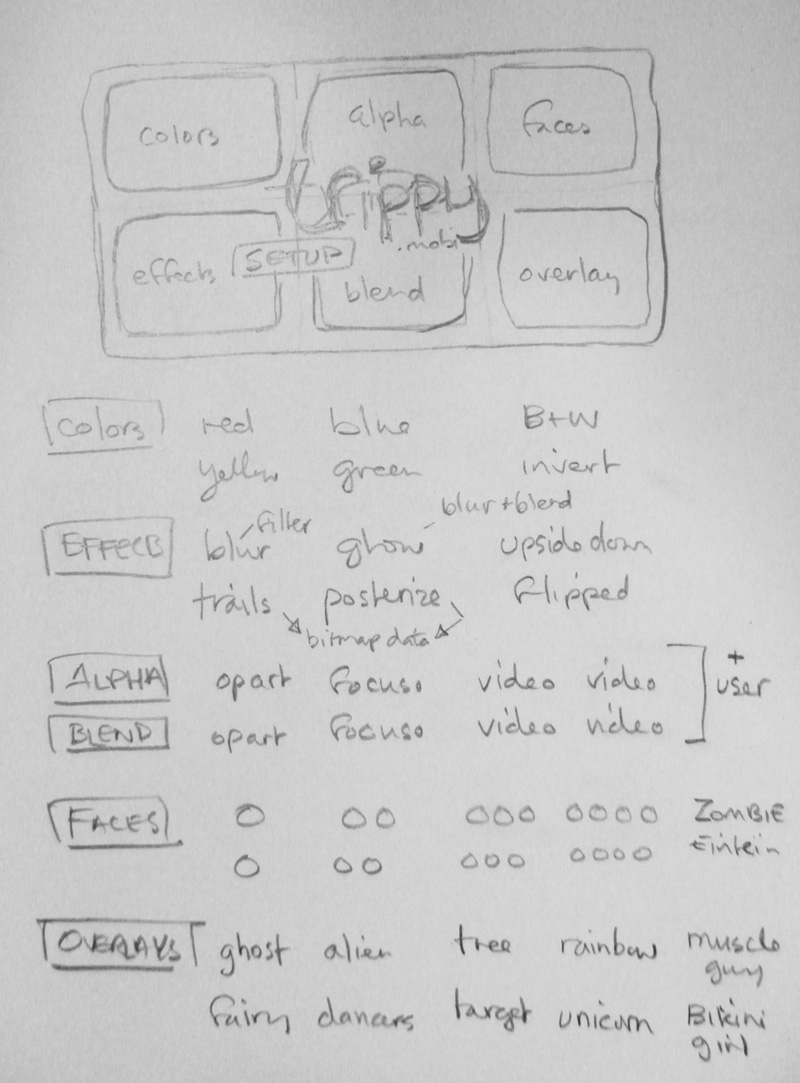 colors alpha faces
trippy
.mobi
effects SETUP blend overlay
Colors red blue B+W
yellow green invert
filter blur+blend
EFFECTS blur glow upside down
trails posterize flipped
bitmap data
ALPHA opart focuso video video + user
BLEND opart focuso video video
FACES O OO OOO OOOO ZOMBIE
O OO OOO OOOO Eintein
OVERLAYS ghost alien tree rainbow muscle guy
fairy dancers target unicurn Bikini girl